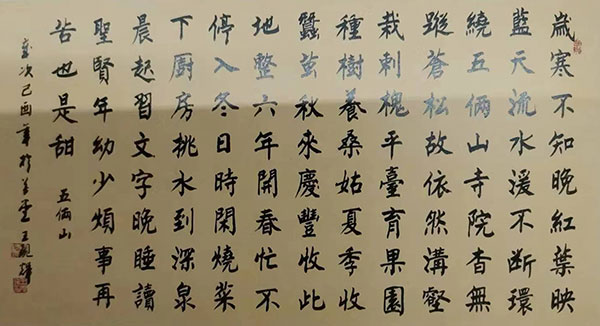 歲寒不知晚紅葉映
藍天流水湲不斷環
繞五倆山寺院杳無
蹤蒼松故依然溝壑
栽刺槐平臺育果園
種樹養桑姑夏季收
蠶茧秋來慶豐收此
地整六年開春忙不
停入冬日時閑燒菜
下厨房挑水到深泉
晨起習文字晚睡讀
聖賢年幼少煩事再
苦也是甜 五倆山
歲次己酉年於